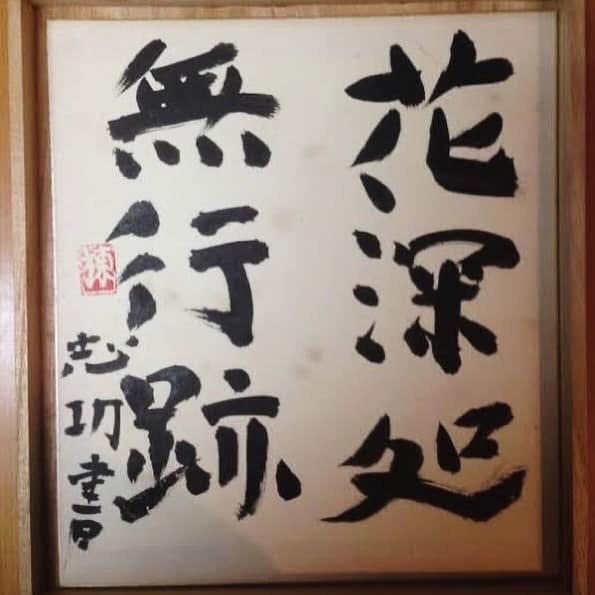 花深処
無行跡
志功書